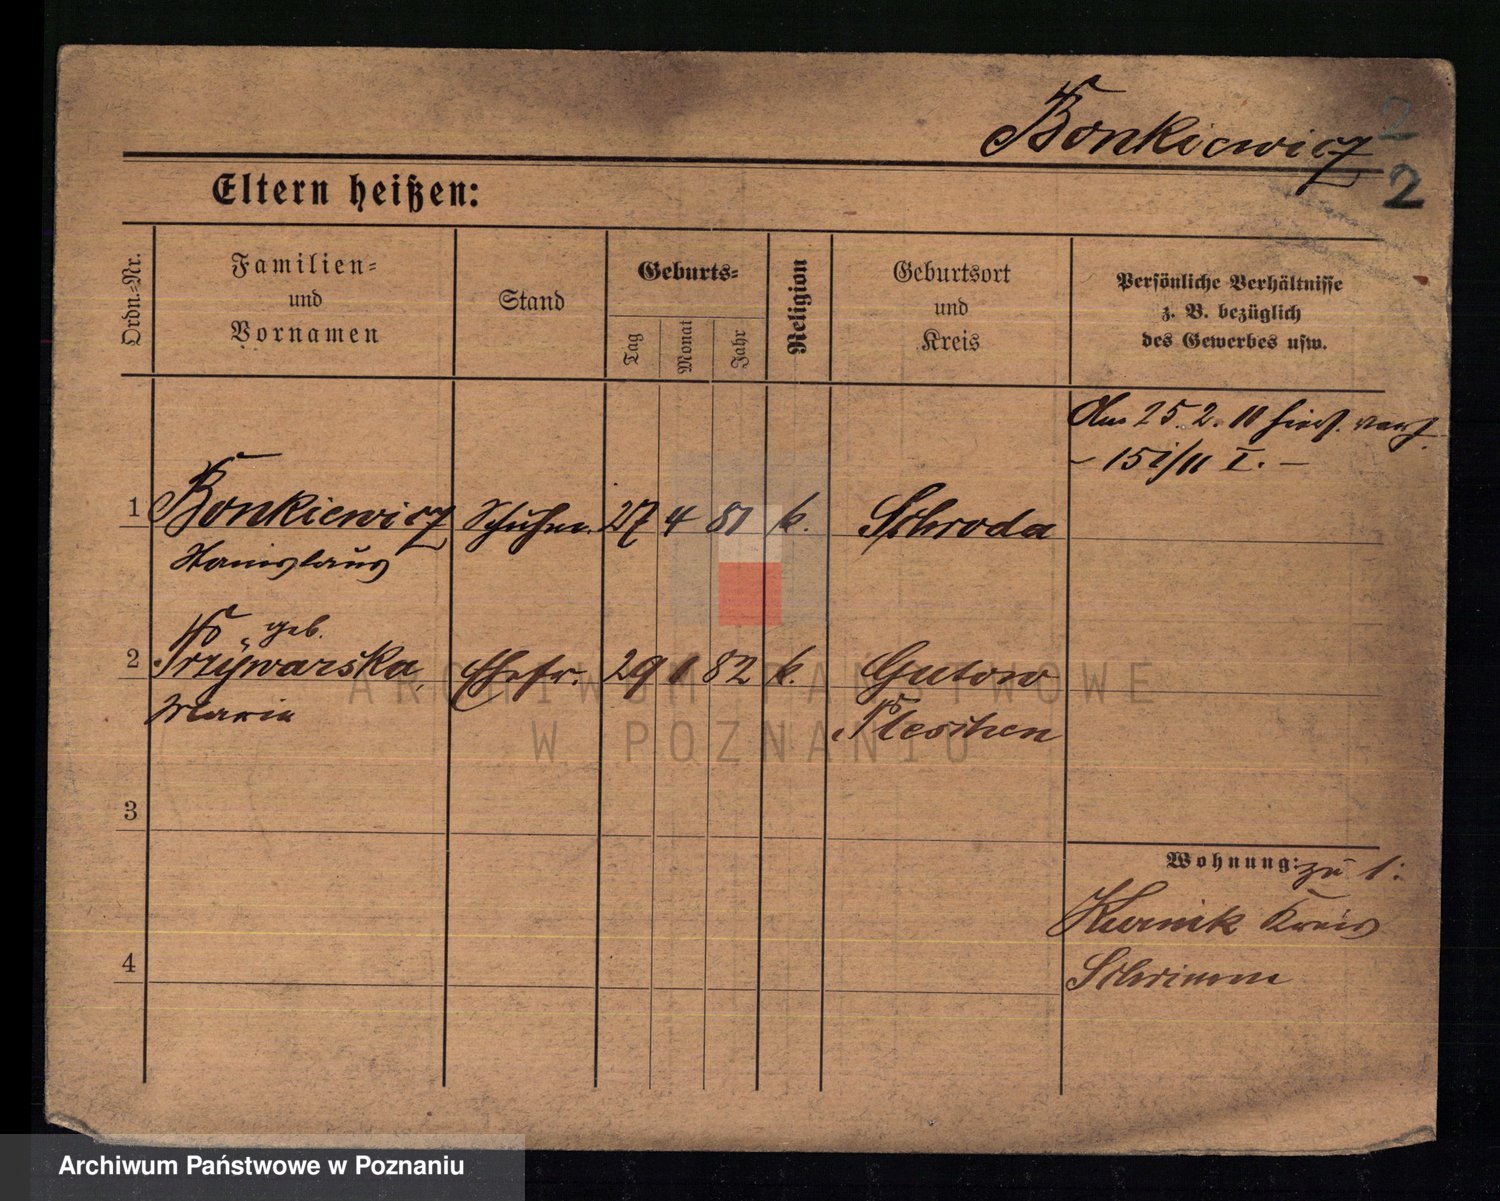 Bonkiewicz
2
2
Eltern heißen:
Ordn.-Nr.
Familien-
und
Vornamen
Stand
Geburts-
Tag
Monat
Jahr
Religion
Geburtsort
und
Kreis
Persönliche Verhältnisse
z. B. bezüglich
des Gewerbes usw.
Am 25. 2. 11
- 15 i/11 I. -
1 Bonkiewicz Schuhm. 27 4 81 k. Schroda
Stanislaus
geb.
2 Przywarska Ehefr. 29 1 82 k. Gutow
Maria Pleschen
3
Wohnung: zu 1:
Kurnik Kreis
4 Schrimm
ARCHIWUM PAŃSTWOWE
W POZNANIU
Archiwum Państwowe w Poznaniu